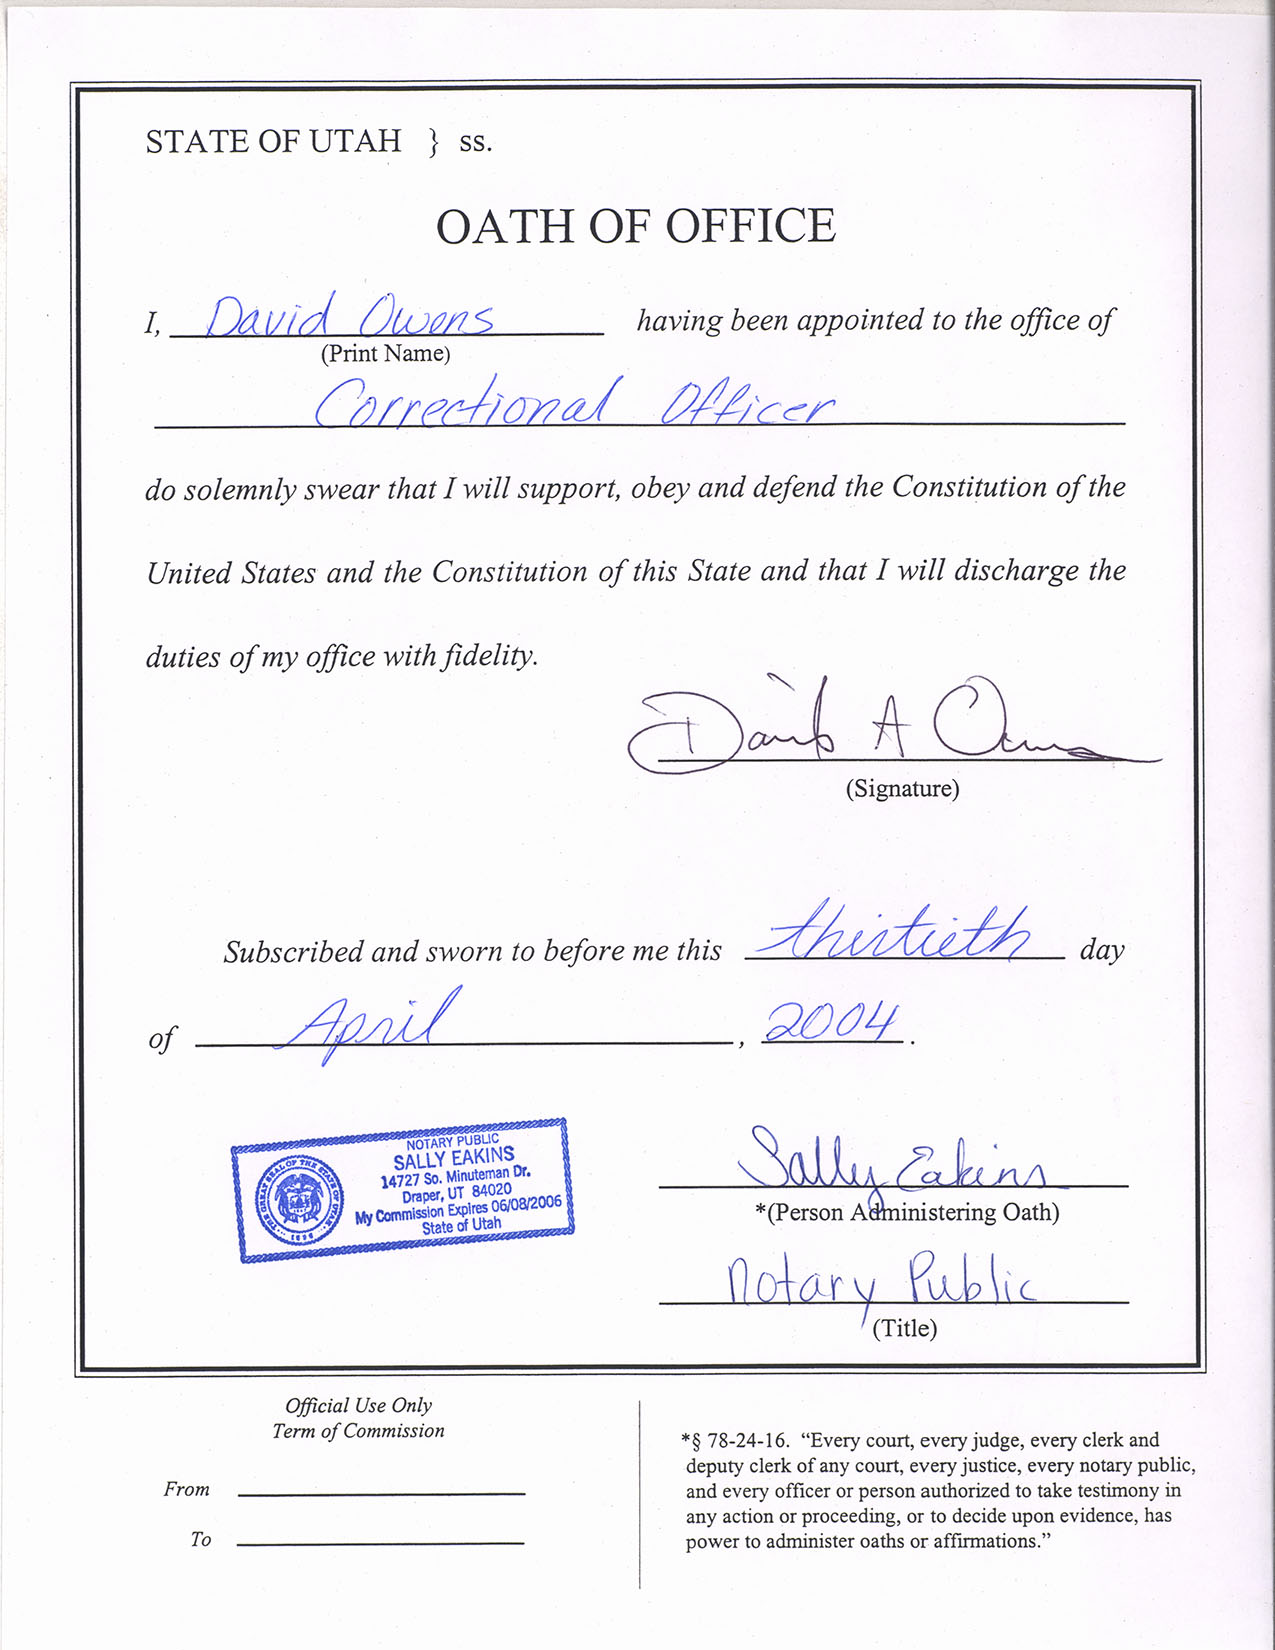 STATE OF UTAH } ss.
OATH OF OFFICE
I, David Owens having been appointed to the office of
(Print Name)
Correctional Officer
do solemnly swear that I will support, obey and defend the Constitution of the
United States and the Constitution of this State and that I will discharge the
duties of my office with fidelity.
David A Owens
(Signature)
Subscribed and sworn to before me this thirtieth day
of April, 2004.
NOTARY PUBLIC
SALLY EAKINS
14727 So. Minuteman Dr.
Draper, UT 84020
My Commission Expires 06/08/2006
State of Utah
THE GREAT SEAL OF THE STATE OF UTAH
1896
Sally Eakins
*(Person Administering Oath)
Notary Public
(Title)
Official Use Only
Term of Commission
From
To
*§ 78-24-16. “Every court, every judge, every clerk and
deputy clerk of any court, every justice, every notary public,
and every officer or person authorized to take testimony in
any action or proceeding, or to decide upon evidence, has
power to administer oaths or affirmations.”